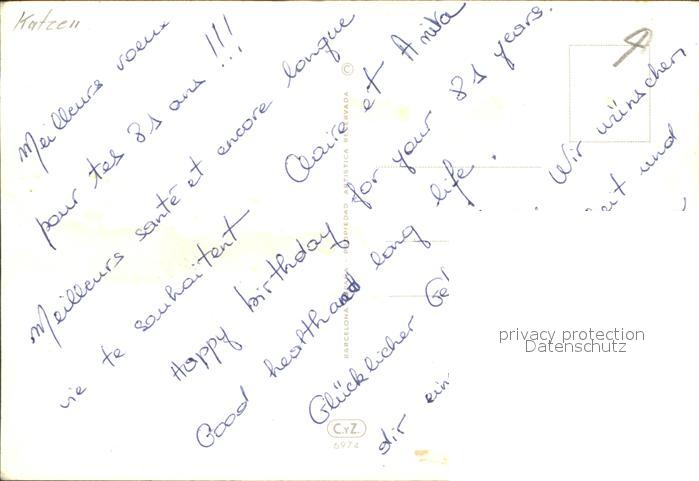 Katzen
Meilleurs voeux
pour tes 81 ans !!!
Meilleurs santé et encore longue
vie te souhaitent Claire et Anita
Happy birthday for your 81 years.
Good healthand long life.
Glücklicher Ge
Wir wünschen
dir ein
eit und
BARCELONA PROPIEDAD ARTISTICA RESERVADA ©
C.Y.Z.
6974
privacy protection
Datenschutz